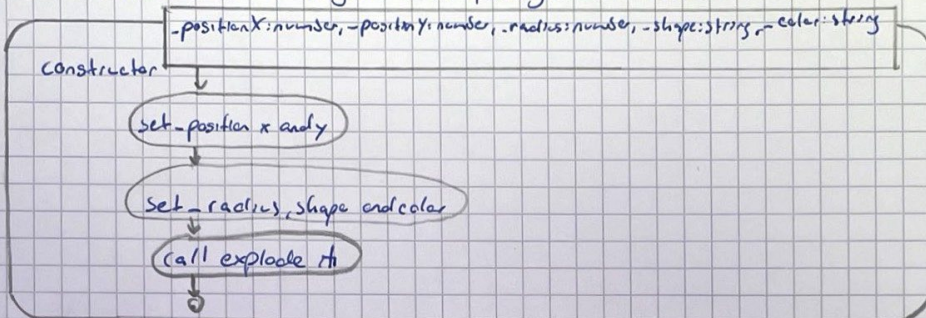 _positionX: number, _positionY: number, _radius: number, _shape: string, _color: string
constructor
set_position x and y
set_radius, shape and color
call explode